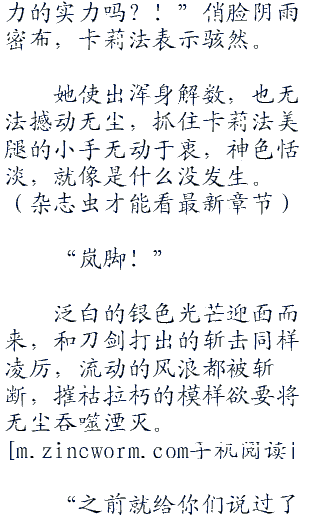 力的实力吗？！”俏脸阴雨
密布，卡莉法表示骇然。
她使出浑身解数，也无
法撼动无尘，抓住卡莉法美
腿的小手无动于衷，神色恬
淡，就像是什么没发生。
（杂志虫才能看最新章节）
“岚脚！”
泛白的银色光芒迎面而
来，和刀剑打出的斩击同样
凌厉，流动的风浪都被斩
断，摧祜拉朽的模样欲要将
无尘吞噬湮灭。
[m.zincworm.com手机阅读i
“之前就给你们说过了